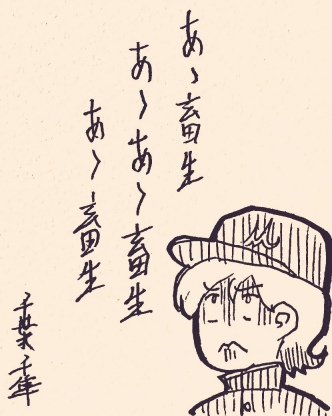 あゝ畜生
あゝあゝ畜生
あゝ畜生
千葉千隼
M